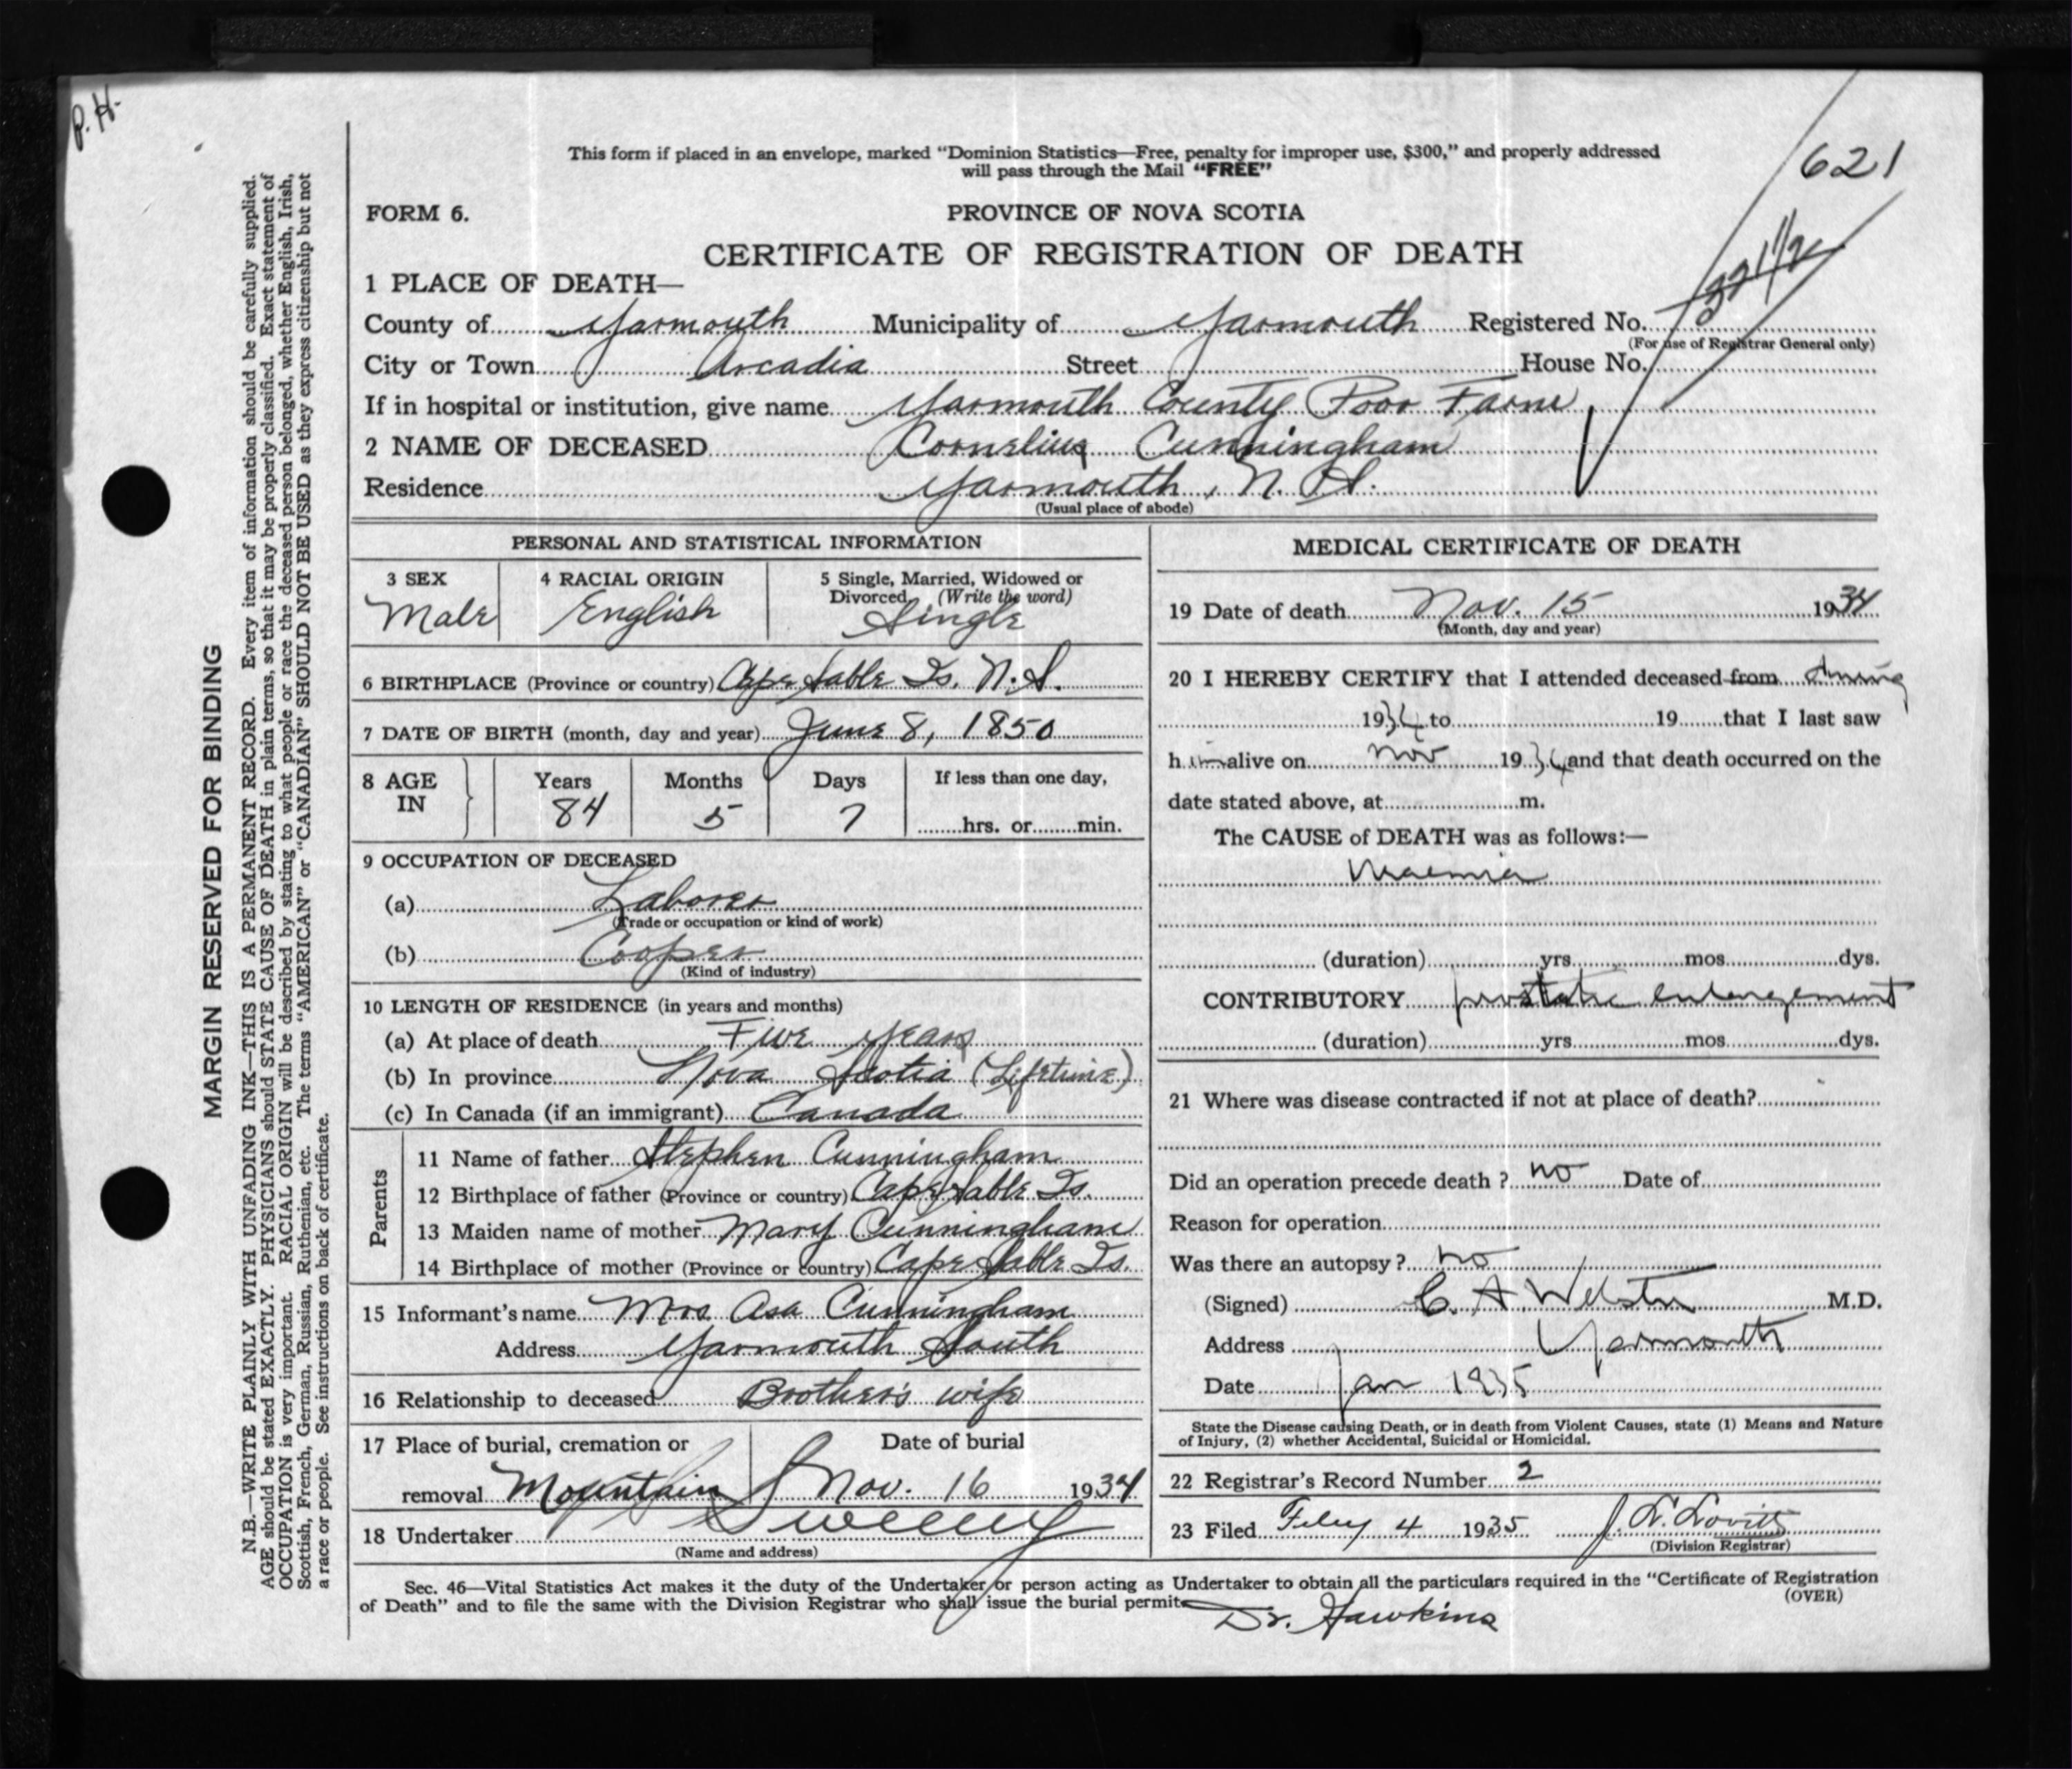 P. H.
This form if placed in an envelope, marked "Dominion Statistics—Free, penalty for improper use, $300," and properly addressed
will pass through the Mail "FREE"
621
FORM 6.
PROVINCE OF NOVA SCOTIA
CERTIFICATE OF REGISTRATION OF DEATH
1 PLACE OF DEATH—
County of Yarmouth Municipality of Yarmouth Registered No.
(For use of Registrar General only)
City or Town Arcadia Street House No.
If in hospital or institution, give name Yarmouth County Poor Farm
2 NAME OF DECEASED Cornelius Cunningham
Residence Yarmouth, N. S.
(Usual place of abode)
PERSONAL AND STATISTICAL INFORMATION
3 SEX 4 RACIAL ORIGIN 5 Single, Married, Widowed or
Divorced (Write the word)
Male English Single
6 BIRTHPLACE (Province or country) Cape Sable Is. N.S.
7 DATE OF BIRTH (month, day and year) June 8, 1850
8 AGE IN Years Months Days If less than one day,
84 5 7 hrs. or min.
9 OCCUPATION OF DECEASED
(a) Laborer
(Trade or occupation or kind of work)
(b) Cooper
(Kind of industry)
10 LENGTH OF RESIDENCE (in years and months)
(a) At place of death Five years
(b) In province Nova Scotia (Lifetime)
(c) In Canada (if an immigrant) Canada
Parents
11 Name of father Stephen Cunningham
12 Birthplace of father (Province or country) Cape Sable Is.
13 Maiden name of mother Mary Cunningham
14 Birthplace of mother (Province or country) Cape Sable Is.
15 Informant's name Mrs. Asa Cunningham
Address Yarmouth South
16 Relationship to deceased Brother's wife
17 Place of burial, cremation or Date of burial
removal Mountain Nov. 16 1934
18 Undertaker Sweeny
(Name and address)
MEDICAL CERTIFICATE OF DEATH
19 Date of death Nov. 15 1934
(Month, day and year)
20 I HEREBY CERTIFY that I attended deceased from during
1934 to 19 that I last saw
h im alive on Nov 1934 and that death occurred on the
date stated above, at m.
The CAUSE of DEATH was as follows:—
Uraemia
(duration) yrs mos dys.
CONTRIBUTORY prostatic enlargement
(duration) yrs mos dys.
21 Where was disease contracted if not at place of death?
Did an operation precede death? no Date of
Reason for operation
Was there an autopsy? no
(Signed) C. A. Webster M.D.
Address Yarmouth
Date Jan 1935
State the Disease causing Death, or in death from Violent Causes, state (1) Means and Nature
of Injury, (2) whether Accidental, Suicidal or Homicidal.
22 Registrar's Record Number 2
23 Filed Feby 4 1935 Lovitt
(Division Registrar)
Sec. 46—Vital Statistics Act makes it the duty of the Undertaker or person acting as Undertaker to obtain all the particulars required in the "Certificate of Registration
of Death" and to file the same with the Division Registrar who shall issue the burial permit.
(OVER)
Dr. Hawkins
MARGIN RESERVED FOR BINDING
N.B.—WRITE PLAINLY WITH UNFADING INK—THIS IS A PERMANENT RECORD. Every item of information should be carefully supplied.
AGE should be stated EXACTLY. PHYSICIANS should STATE CAUSE OF DEATH in plain terms, so that it may be properly classified. Exact statement of
OCCUPATION is very important. RACIAL ORIGIN will be described by stating to what people or race the deceased person belonged, whether English, Irish,
Scottish, French, German, Russian, Ruthenian, etc. The terms "AMERICAN" or "CANADIAN" SHOULD NOT BE USED as they express citizenship but not
a race or people. See instructions on back of certificate.